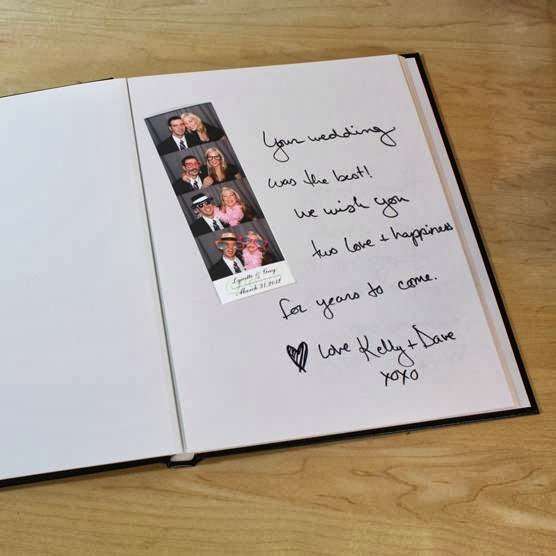 Lynette & Greg
March 31, 2012
Your wedding
was the best!
We wish you
two love + happiness
for years to come.
Love Kelly + Dave
xoxo